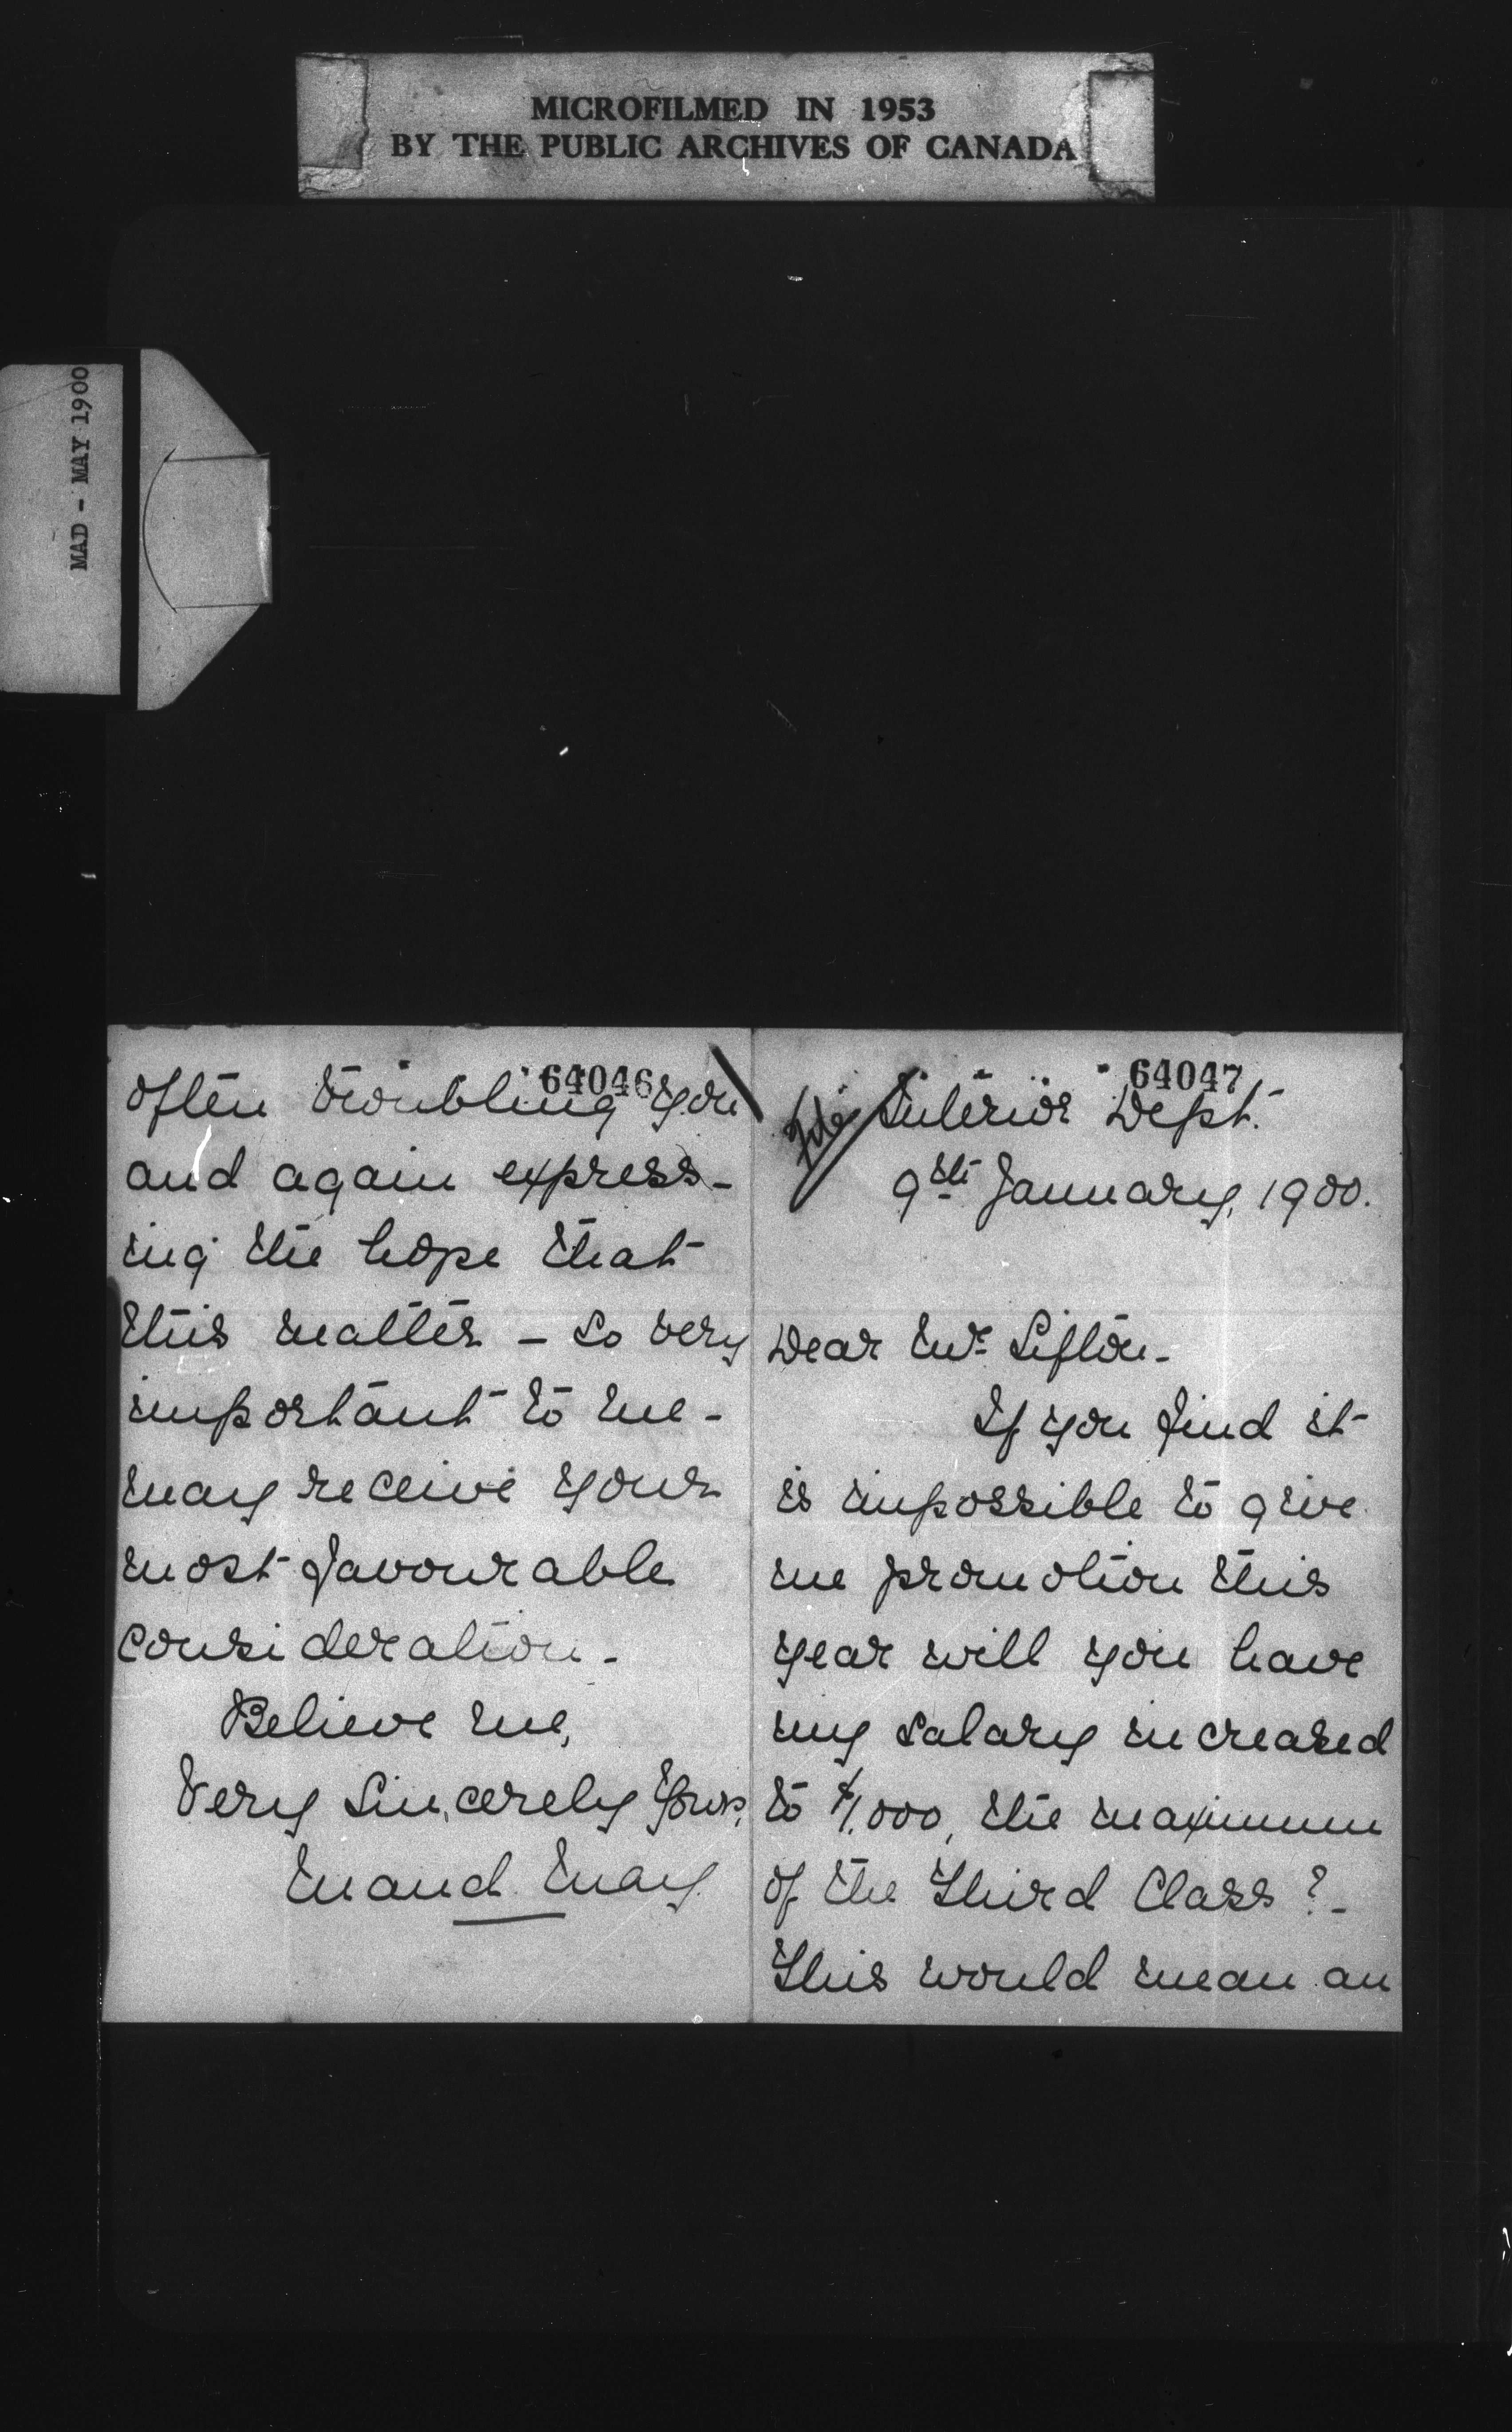 MICROFILMED IN 1953
BY THE PUBLIC ARCHIVES OF CANADA
MAD - MAY 1900
64046
often troubling you
and again express-
ing the hope that
this matter - so very
important to me -
may receive your
most favourable
consideration -
Believe me,
Very Sincerely Yours,
Maud Mary
64047
File
Interior Dept.
9th January, 1900.
Dear Mr. Sifton -
If you find it
is impossible to give
me promotion this
year will you have
my salary increased
to $1,000, the maximum
of the Third Class? -
This would mean an